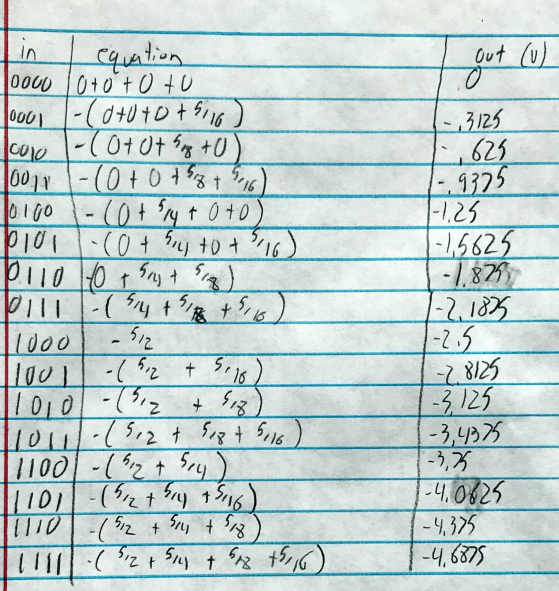 in equation out (V)
0000 0+0+0+0 0
0001 -(0+0+0+5/16) -.3125
0010 -(0+0+5/8+0) -.625
0011 -(0+0+5/8+5/16) -.9375
0100 -(0+5/4+0+0) -1.25
0101 -(0+5/4+0+5/16) -1.5625
0110 -(0+5/4+5/8) -1.875
0111 -(5/4+5/8+5/16) -2.1875
1000 -5/2 -2.5
1001 -(5/2+5/16) -2.8125
1010 -(5/2+5/8) -3.125
1011 -(5/2+5/8+5/16) -3.4375
1100 -(5/2+5/4) -3.75
1101 -(5/2+5/4+5/16) -4.0625
1110 -(5/2+5/4+5/8) -4.375
1111 -(5/2+5/4+5/8+5/16) -4.6875